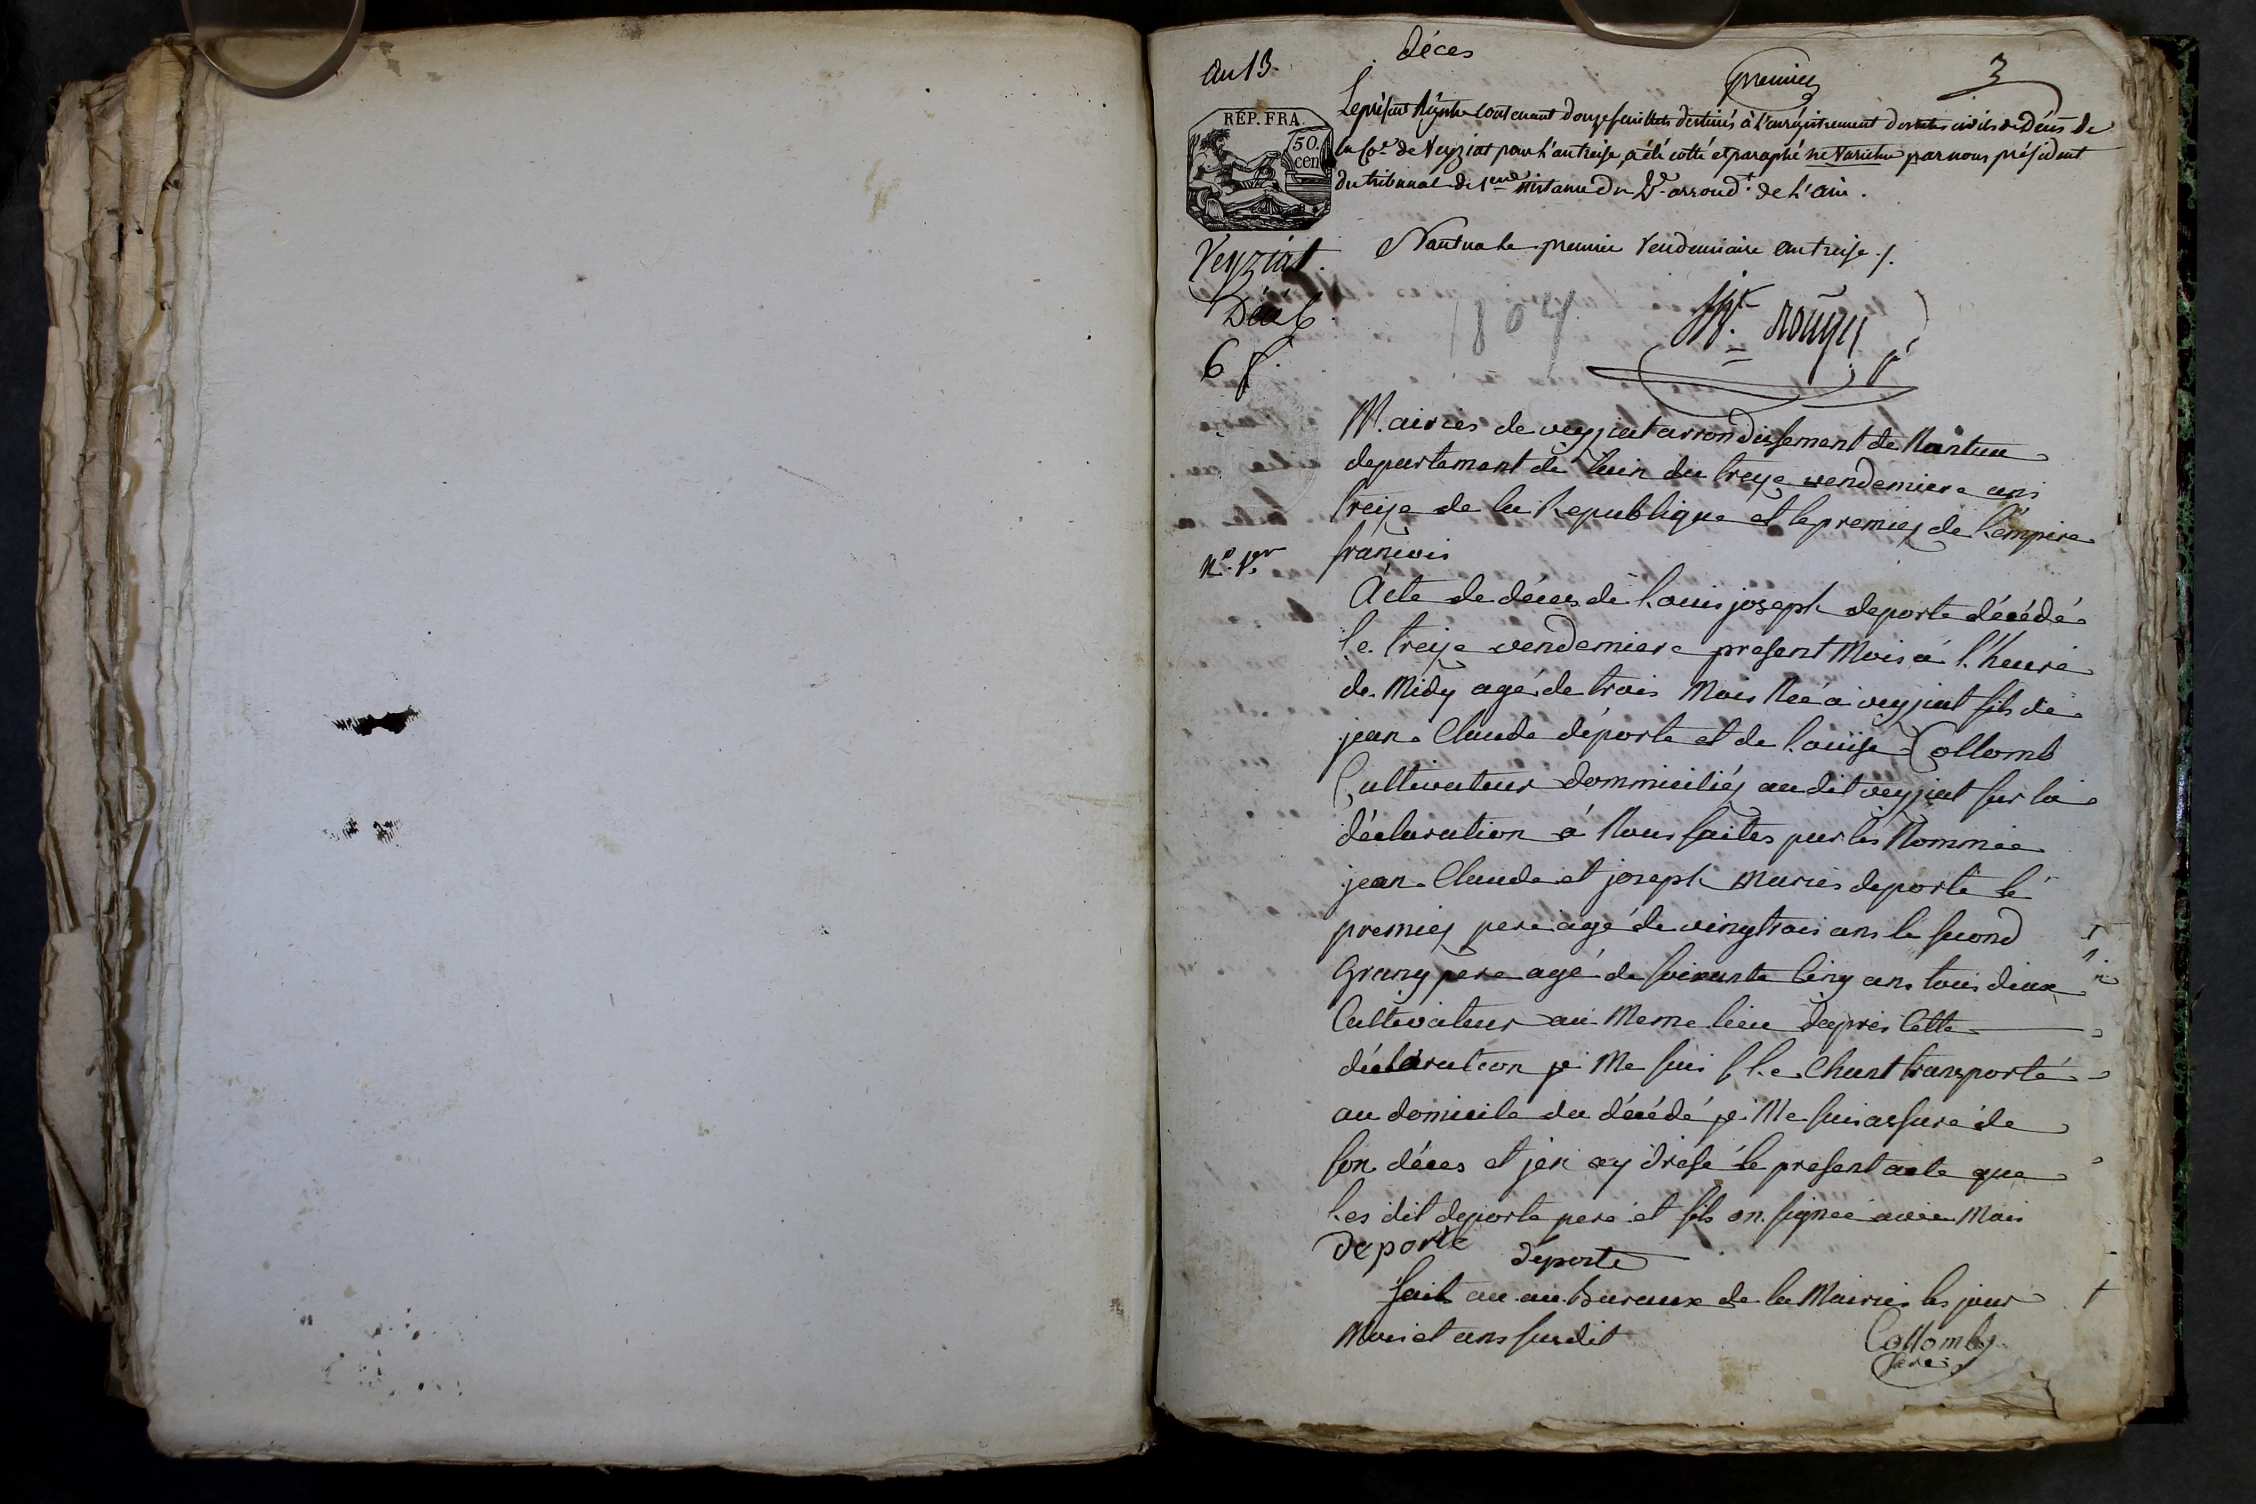 An 13.
Déces
premier
3
REP. FRA.
50.
cen
Le présent Régistre contenant douze feuillets destinés à l'enrégistrement des actes civils de Décès de
la Co.ne de Veyziat pour l'an treise, a été cotté et paraphé ne Varietur par nous président
du tribunal de 1ere instance du 2e arrond.t de l'ain.
Nantua le premier Vendemiaire an treise ./.
Veyziat.
Décès
6 f.
1804
rougy
Mairies de veyziat arrondissement de Nantua
departement de lain du treize vendemiere ans
treize de la Republique et le premier de l'empire
N.o 1.er
francois
Acte de déces de Louis joseph deporte décédé
le treize vendemiere present Mois a l'heure
de Midy agé de trois Mois Neé a veyziat fils de
jean Claude déporte et de Louise Collomb
Cultivateur dommiciliéz au dit veyziat sur la
déclaration á Nous faites par les Nommée
jean Claude et joseph Maries deporte le
premier pere agé de vingtrois ans le second
Grang pere agé de soixante Cinq ans tous deux
Cultivateur au Meme lieu dapres Cette
déclaration je Me suis sle Chant transporté
au domicile du décédé je Me suis assuré de
son déces et jen ay drésé le present acte que
Les dit deporte pere et fils on signeé avec Mois
deporte déporte
fait au au Buraux de la Mairies les jour
Mois et ans susdit
Collomb